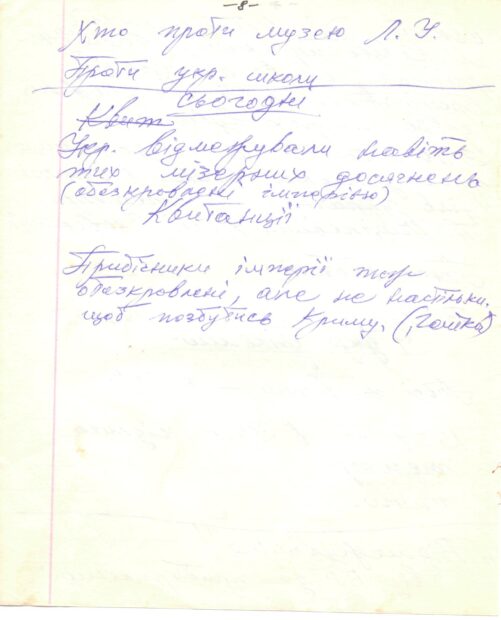 –8–
Хто проти музею Л. У.
Проти укр. школи
сьогодні
Квит
Укр. відмежували навіть
тих мізерних досягнень
(обезкровлені імперією)
Квитанції
Прибічники імперії теж
обезкровлені, але не настільки,
щоб позбутись Криму.